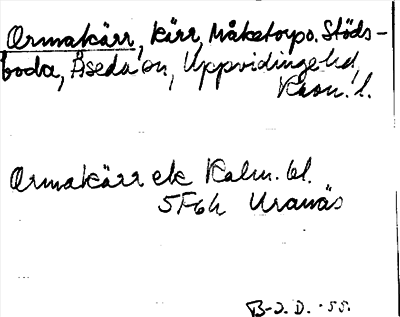 Ormakärr, kärr, Måketorp o. Stöds-
boda, Åseda sn, Uppvidinge hd,
Kron. l.
Ormakärr ek Kalm. bl.
5F6h Uranäs
B-J. D. -55.